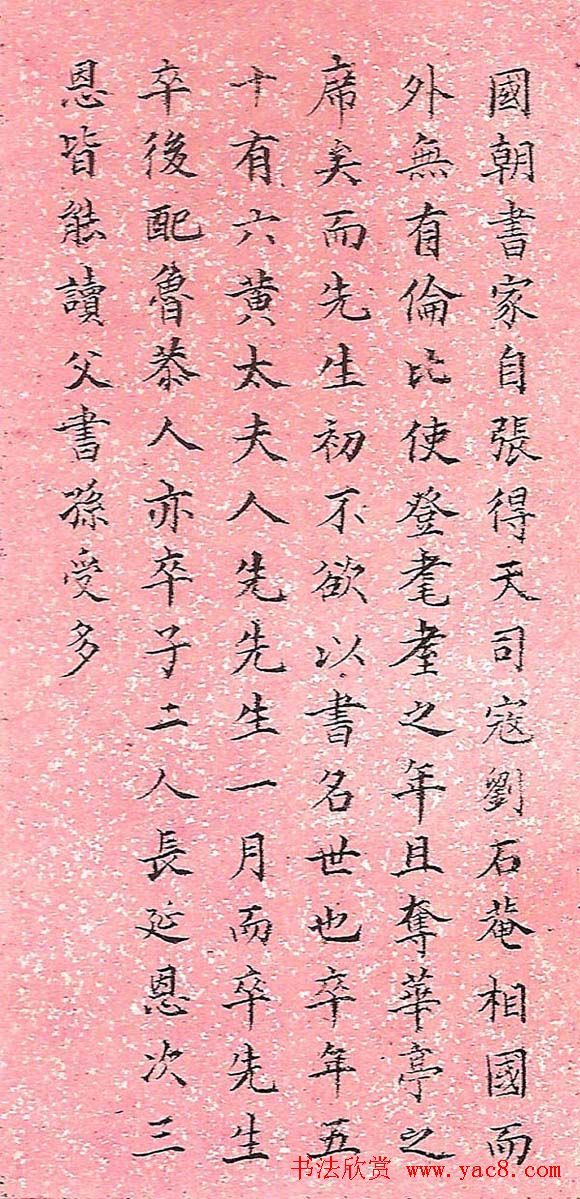 國朝書家自張得天司寇劉石菴相國而
外無有倫比使登耄耋之年且奪華亭之
席矣而先生初不欲以書名世也卒年五
十有六黄太夫人先先生一月而卒先生
卒後配魯恭人亦卒子二人長延恩次三
恩皆能讀父書孫受多
书法欣赏 www.yac8.com